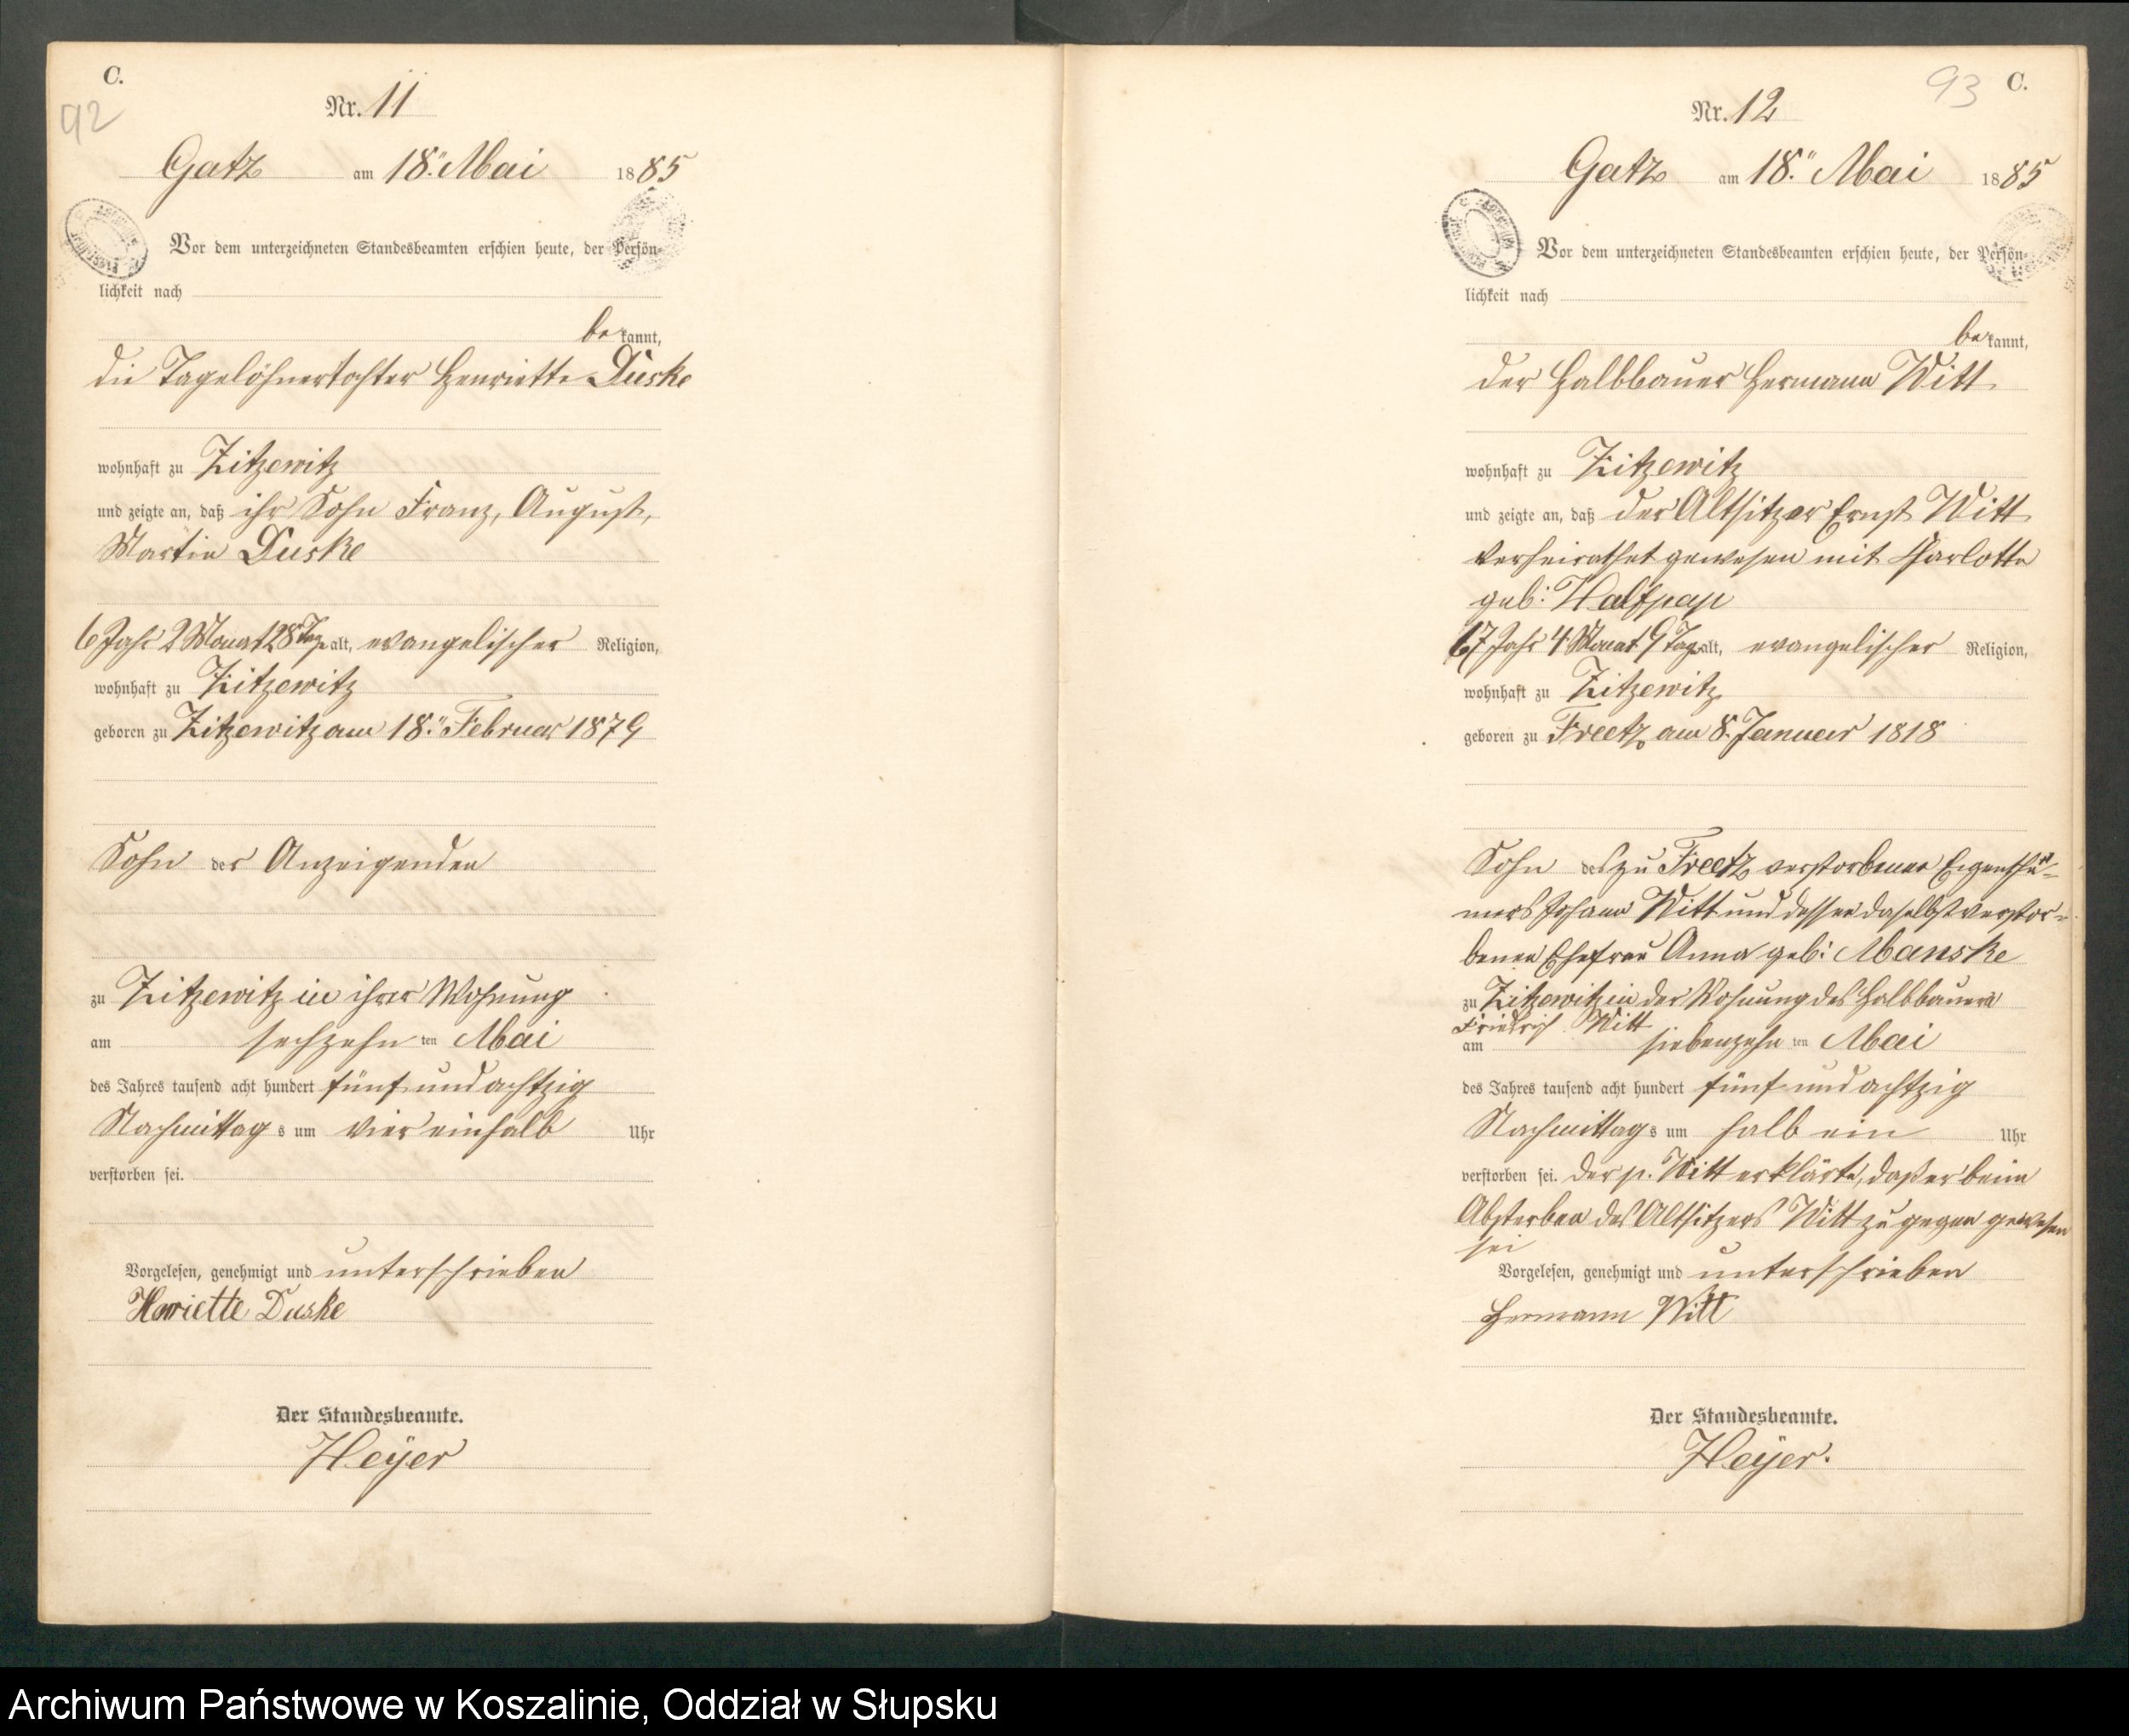 C.
92
Nr. 11
Gatz am 18. Mai 1885
Vor dem unterzeichneten Standesbeamten erschien heute, der Persön-
lichkeit nach
bekannt,
die Tagelöhnertochter Henriette Duske
wohnhaft zu Zitzewitz
und zeigte an, daß ihr Sohn Franz, August,
Martin Duske
6 Jahr 2 Monat 28 Tage alt, evangelischer Religion,
wohnhaft zu Zitzewitz
geboren zu Zitzewitz am 18. Februar 1879
Sohn der Anzeigenden
zu Zitzewitz in ihrer Wohnung
am sechzehnten Mai
des Jahres tausend acht hundert fünf und achtzig
Nachmittags um vier einhalb Uhr
verstorben sei.
Vorgelesen, genehmigt und unterschrieben
Henriette Duske
Der Standesbeamte.
Heÿer
93
C.
Nr. 12
Gatz am 18. Mai 1885
Vor dem unterzeichneten Standesbeamten erschien heute, der Persön-
lichkeit nach
bekannt,
der Halbbauer Hermann Witt
wohnhaft zu Zitzewitz
und zeigte an, daß der Altsitzer Ernst Witt
verheirathet gewesen mit Charlotte
geb: Halfpap
67 Jahr 4 Monat 9 Tage alt, evangelischer Religion,
wohnhaft zu Zitzewitz
geboren zu Freetz am 8. Januar 1818
Sohn des zu Freetz verstorbenen Eigenthü-
mers Johann Witt und dessen daselbst verstor-
benen Ehefrau Anna geb: Manske
zu Zitzewitz in der Wohnung des Halbbauern
Friedrich Witt
am siebenzehnten Mai
des Jahres tausend acht hundert fünf und achtzig
Nachmittags um halb ein Uhr
verstorben sei. Der p. Witt erklärte, daß er beim
Absterben des Altsitzers Witt zu gegen gewesen
sei
Vorgelesen, genehmigt und unterschrieben
Hermann Witt
Der Standesbeamte.
Heÿer.
Archiwum Państwowe w Koszalinie, Oddział w Słupsku